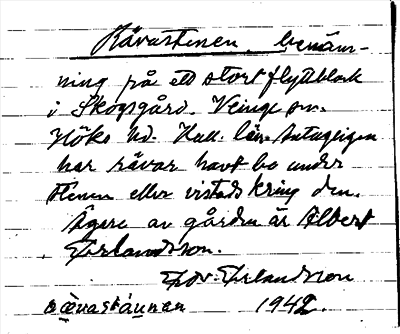 Rävastenen, benäm-
ning på ett stort flyttblock
i Skogsgård. Veinge sn.
Höks hd. Hall. län. Antagligen
har rävar havt bo under
stenen eller vistads kring den.
Ägare av gården är Albert
Erlandsson.
Edv. Erlandsson
1942.